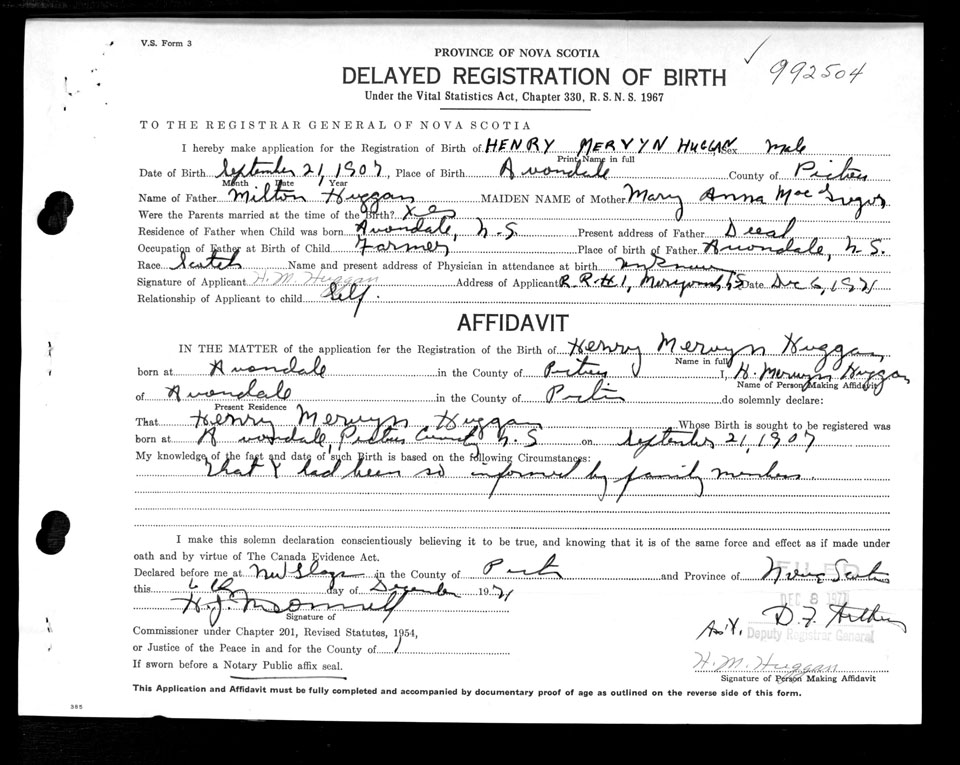 V.S. Form 3
PROVINCE OF NOVA SCOTIA
992504
DELAYED REGISTRATION OF BIRTH
Under the Vital Statistics Act, Chapter 330, R.S.N.S. 1967
TO THE REGISTRAR GENERAL OF NOVA SCOTIA
I hereby make application for the Registration of Birth of HENRY MERVYN HUGGAN Sex Male
Print Name in full
Date of Birth September 21, 1907, Place of Birth Avondale County of Pictou
Month Date Year
Name of Father Milton Huggan MAIDEN NAME of Mother Mary Anna MacGregor
Were the Parents married at the time of the Birth? Yes
Residence of Father when Child was born Avondale, N.S. Present address of Father Dead
Occupation of Father at Birth of Child Farmer Place of birth of Father Avondale, N.S.
Race Scotch Name and present address of Physician in attendance at birth
Signature of Applicant H. M. Huggan Address of Applicant R.R.#1, N.S. Date Dec 6, 1971
Relationship of Applicant to child Self.
AFFIDAVIT
IN THE MATTER of the application for the Registration of the Birth of Henry Mervyn Huggan
Name in full
born at Avondale in the County of Pictou I, H. Mervyn Huggan
Name of Person Making Affidavit
of Avondale in the County of Pictou do solemnly declare:
Present Residence
That Henry Mervyn Huggan Whose Birth is sought to be registered was
born at Avondale, Pictou County N.S on September 21, 1907
My knowledge of the fact and date of such Birth is based on the following Circumstances:
that I had been so informed by family members
I make this solemn declaration conscientiously believing it to be true, and knowing that it is of the same force and effect as if made under
oath and by virtue of The Canada Evidence Act.
Declared before me at New Glasgow in the County of Pictou and Province of Nova Scotia
this 6th day of December 1971
FILED
DEC 8 1971
Signature of
Commissioner under Chapter 201, Revised Statutes, 1954,
Deputy Registrar General
or Justice of the Peace in and for the County of
H. M. Huggan
If sworn before a Notary Public affix seal.
Signature of Person Making Affidavit
This Application and Affidavit must be fully completed and accompanied by documentary proof of age as outlined on the reverse side of this form.
385